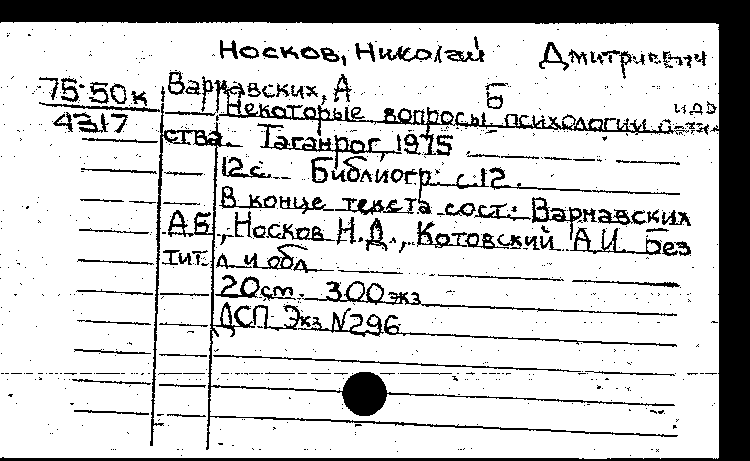 Носков, Николай Дмитриевич
75-50к Варнавских, А Б
Некоторые вопросы психологии
4317
ства. Таганрог, 1975
12 с. Библиогр: с.12.
В конце текста сост.: Варнавских
А.Б., Носков Н.Д., Котовский А.И. Без
тит. л и обл
20см. 300 экз
ДСП Экз N296